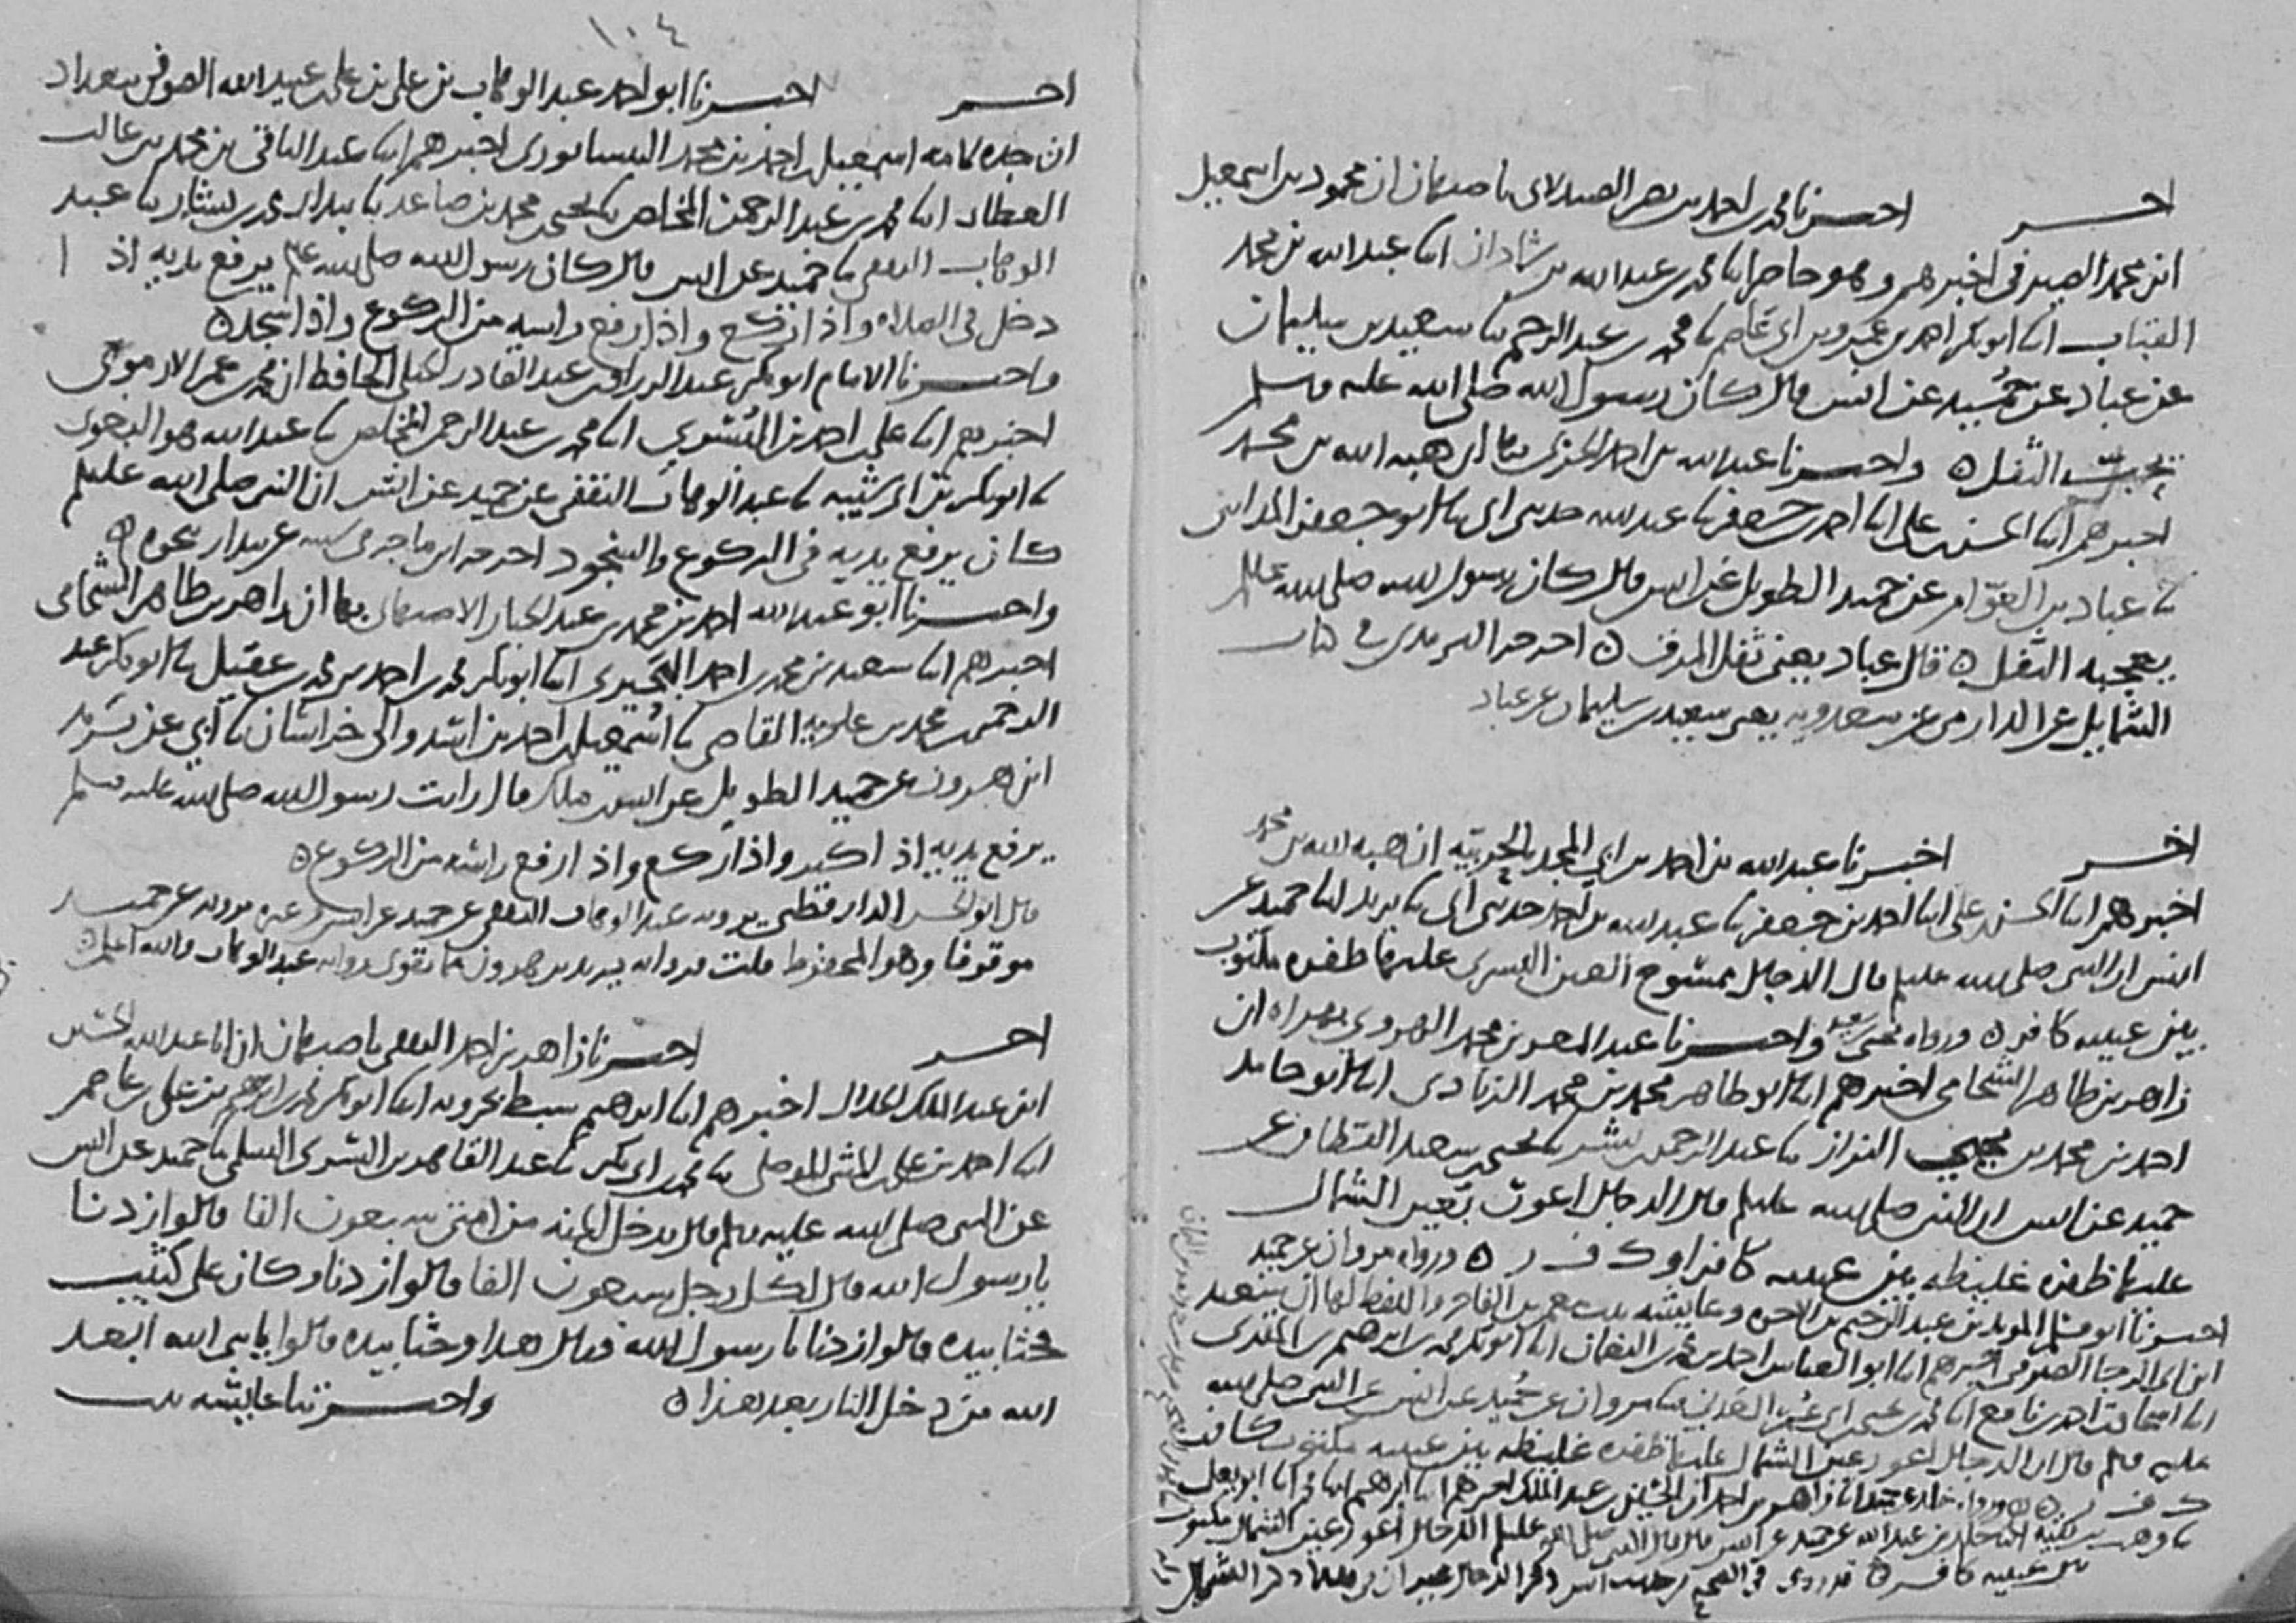 احـــر اخبرنا محمد بن احمد بن نصر الصيدلاني باصبهان ان محمود بن اسمعيل
ابن محمد الصيرفي اخبرهم وهو حاضر ابنا محمد بن عبد الله بن شاذان ابنا عبد الله بن محمد
القباب ابنا ابو بكر احمد بن عمرو بن ابي عاصم نا محمد بن عبد الرحيم نا سعيد بن سليمان
عن عباد عن حميد عن انس قال كان رسول الله صلى الله عليه وسلم
الثفل ٥ واخبرنا عبد الله بن احمد الحربي بها ان هبة الله بن محمد
اخبرهم ابنا الحسن بن علي ابنا احمد بن جعفر نا عبد الله حدثني ابي نا ابو جعفر المدائني
نا عباد بن العوام عن حميد الطويل عن انس قال كان رسول الله صلى الله عليه وسلم
يعجبه الثفل ٥ قال عباد يعني ثفل المرق ٥ اخرجه الترمذي في كتاب
الشمايل عن الدارمي عن سعدويه يعني سعيد بن سليمان عن عباد
اخـــر اخبرنا عبد الله بن احمد بن ابي المجد بالحربية ان هبة الله بن محمد
اخبرهم ابنا الحسن بن علي ابنا احمد بن جعفر نا عبد الله بن احمد حدثني ابي نا يزيد ابنا حميد عن
انس ان النبي صلى الله عليه وسلم قال الدجال ممسوح العين اليسرى عليها ظفره مكتوب
بين عينيه كافر ٥ ورواه يحيى واخبرنا عبد المعز بن محمد الهروي بهراه ان
زاهر بن طاهر الشحامي اخبرهم ابنا ابو طاهر محمد بن محمد الزيادي ابنا ابو حامد
احمد بن محمد بن يحيى البزاز نا عبد الرحمن بن بشر نا يحيى بن سعيد القطان عن
حميد عن انس ان النبي صلى الله عليه وسلم قال الدجال اعور بعين الشمال
عليها ظفره غليظه بين عينيه كافر او ك ف ر ٥ ورواه مروان عن حميد
اخبرنا ابو مسلم المويد بن عبد الرحيم بن الاخوه وعايشه بنت معمر بن الفاخر واللفظ لها ان سعيد
ابن ابي الرجا الصيرفي اخبرهم ابنا ابو العباس احمد بن محمد بن النعمان ابنا ابو بكر محمد بن ابرهيم بن المقرئ
ابنا اسحاق بن احمد بن نافع ابنا محمد بن يحيى بن ابي عمر العدني نا مروان عن حميد عن انس عن النبي صلى الله
عليه وسلم قال ان الدجال اعور عين الشمال عليها ظفره غليظه بين عينيه مكتوب كافر
ك ف ر ٥ ورواه خالد عن حميد ابنا زاهر بن احمد ان الحسين بن عبد الملك اخبرهم ابنا ابرهيم ابنا محمد ابنا ابو يعلى
نا وهب بن بقيه ابنا خالد بن عبد الله عن حميد عن انس قال قال النبي صلى الله عليه وسلم الدجال اعور عين الشمال مكتوب
بين عينيه كافر ٥ قد روي في الصحيح من حديث انس ذكر الدجال غير ان ذكر الشمال
١٠٤
احـــر اخبرنا ابو احمد عبد الوهاب بن علي بن علي بن عبيد الله الصوفي ببغداد
ان جده لامه اسمعيل بن احمد بن محمد النيسابوري اخبرهم ابنا عبد الباقي بن محمد بن غالب
العطار ابنا محمد بن عبد الرحمن المخلص نا يحيى بن محمد بن صاعد نا بندار محمد بن بشار نا عبد
الوهاب الثقفي نا حميد عن انس قال كان رسول الله صلى الله عليه وسلم يرفع يديه اذا
دخل في الصلاه واذا ركع واذا رفع راسه من الركوع واذا سجد ٥
واخبرنا الامام ابو بكر عبد الرزاق بن عبد القادر الجيلي الحافظ ان محمد بن عمر الارموي
اخبرهم ابنا علي بن احمد بن البسري ابنا محمد بن عبد الرحمن المخلص نا عبد الله هو البغوي
نا ابو بكر بن ابي شيبه نا عبد الوهاب الثقفي عن حميد عن انس ان النبي صلى الله عليه وسلم
كان يرفع يديه في الركوع والسجود اخرجه ابن ماجه في سننه عن بندار بنحوه ٥
واخبرنا ابو عبد الله احمد بن محمد بن عبد الجبار الاصبهاني بها ان زاهر بن طاهر الشحامي
اخبرهم ابنا سعيد بن محمد بن احمد البحيري ابنا ابو بكر محمد بن احمد بن محمد بن عقيل نا ابو بكر عبد
الرحمن بن محمد بن علويه القاضي نا اسمعيل بن احمد بن اسد والي خراسان نا ابي عن يزيد
ابن هرون عن حميد الطويل عن انس بن ملك قال رايت رسول الله صلى الله عليه وسلم
يرفع يديه اذا كبر واذا ركع واذا رفع راسه من الركوع ٥
قال ابو الحسن الدارقطني يرويه عبد الوهاب الثقفي عن حميد عن انس وغيره يرويه عن حميد
موقوفا وهو المحفوظ قلت فرواية يزيد بن هرون مما يقوي رواية عبد الوهاب والله اعلم ٥
احـــر اخبرنا زاهر بن احمد الثقفي باصبهان ان ابا عبد الله الحسين
ابن عبد الملك الخلال اخبرهم ابنا ابرهيم سبط بحرويه ابنا ابو بكر محمد بن ابرهيم بن علي بن عاصم
ابنا احمد بن علي بن المثنى الموصلي نا محمد بن ابي بكر نا عبد القاهر بن السري السلمي نا حميد عن انس
عن النبي صلى الله عليه وسلم قال يدخل الجنة من امتي سبعون الفا قالوا زدنا
يا رسول الله قال لكل رجل سبعون الفا قالوا زدنا وكان على كثيب
فحثا بيده قالوا زدنا يا رسول الله فقال هذا وحثا بيده قالوا يا نبي الله ابعد
الله من دخل النار بعد هذا ٥ واخبرتنا عايشه بنت